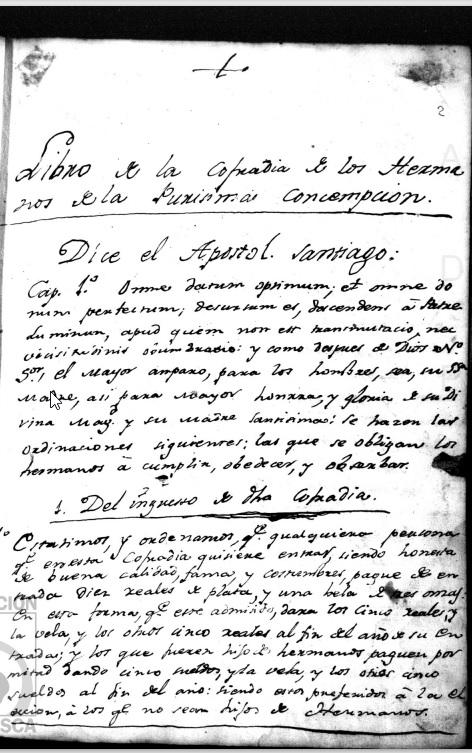 2
Libro de la Cofradia de los Herma
nos de la Purisima Concempcion.
Dice el Apostol Santiago:
Cap. 1.º Omne datum optimum, et omne do
num perfectum; desursum es, descendens â Patre
luminum, apud quem non est transmutacio, nec
vicisitudinis obumbracio: y como despues de Dios N.º
S.or, el mayor amparo, para los hombres, sea, su SS.ma
Madre, asi para mayor honrra, y gloria de su Di
vina Mag.d y su madre santisima: se hazen las
ordinaciones siguientes; las que se obligan los
hermanos â cumplir, obedecer, y obserbar.
1. Del ingreso de dha Cofradia.
Estatuimos, y ordenamos, q.e qualquiera persona
q.e en esta Cofradia quisiere entrar, siendo honesta
de buena calidad, fama, y costumbres, pague de en
trada Diez reales de plata, y una bela de tres onzas:
En esta forma, q.e esté admitido, dara los Cinco reales, y
la vela, y los otros cinco reales al fin del año de su en
trada; y los que fueren hijos de hermanos paguen por
mitad dando cinco sueldos, y la vela, y los otros cinco
sueldos al fin del año: siendo estos preferidos â la el
eccion, â los q.e no sean hijos de Hermanos.